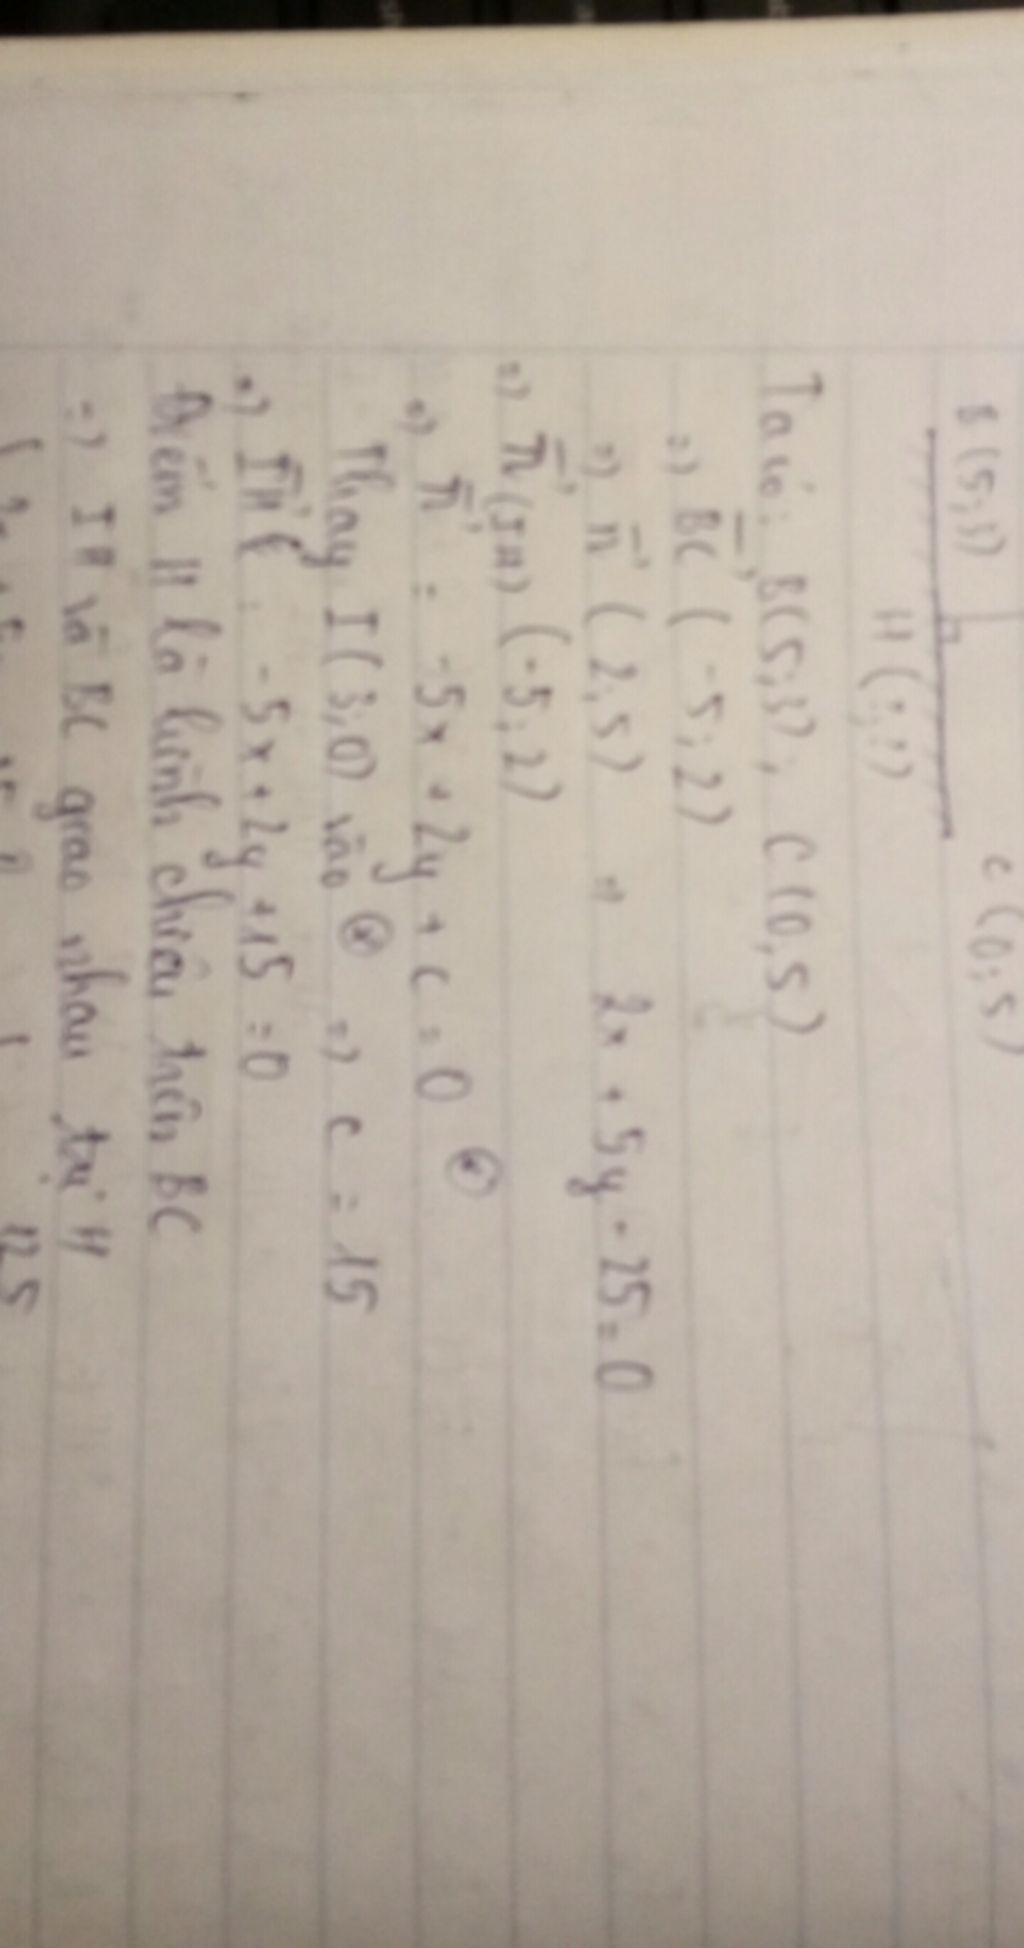 B(5;3)
C(0;5)
H(?;?)
Ta có: B(5;3), C(0,5)
=) BC (-5;2)
=) n (2;5) =) 2x + 5y - 25 = 0
=) n(IH) (-5;2)
=) n : -5x + 2y + c = 0 (*)
Thay I(3;0) vào (*) =) c = 15
=) IH : -5x + 2y + 15 = 0
Điểm H là hình chiếu trên BC
=) IH và BC giao nhau tại H